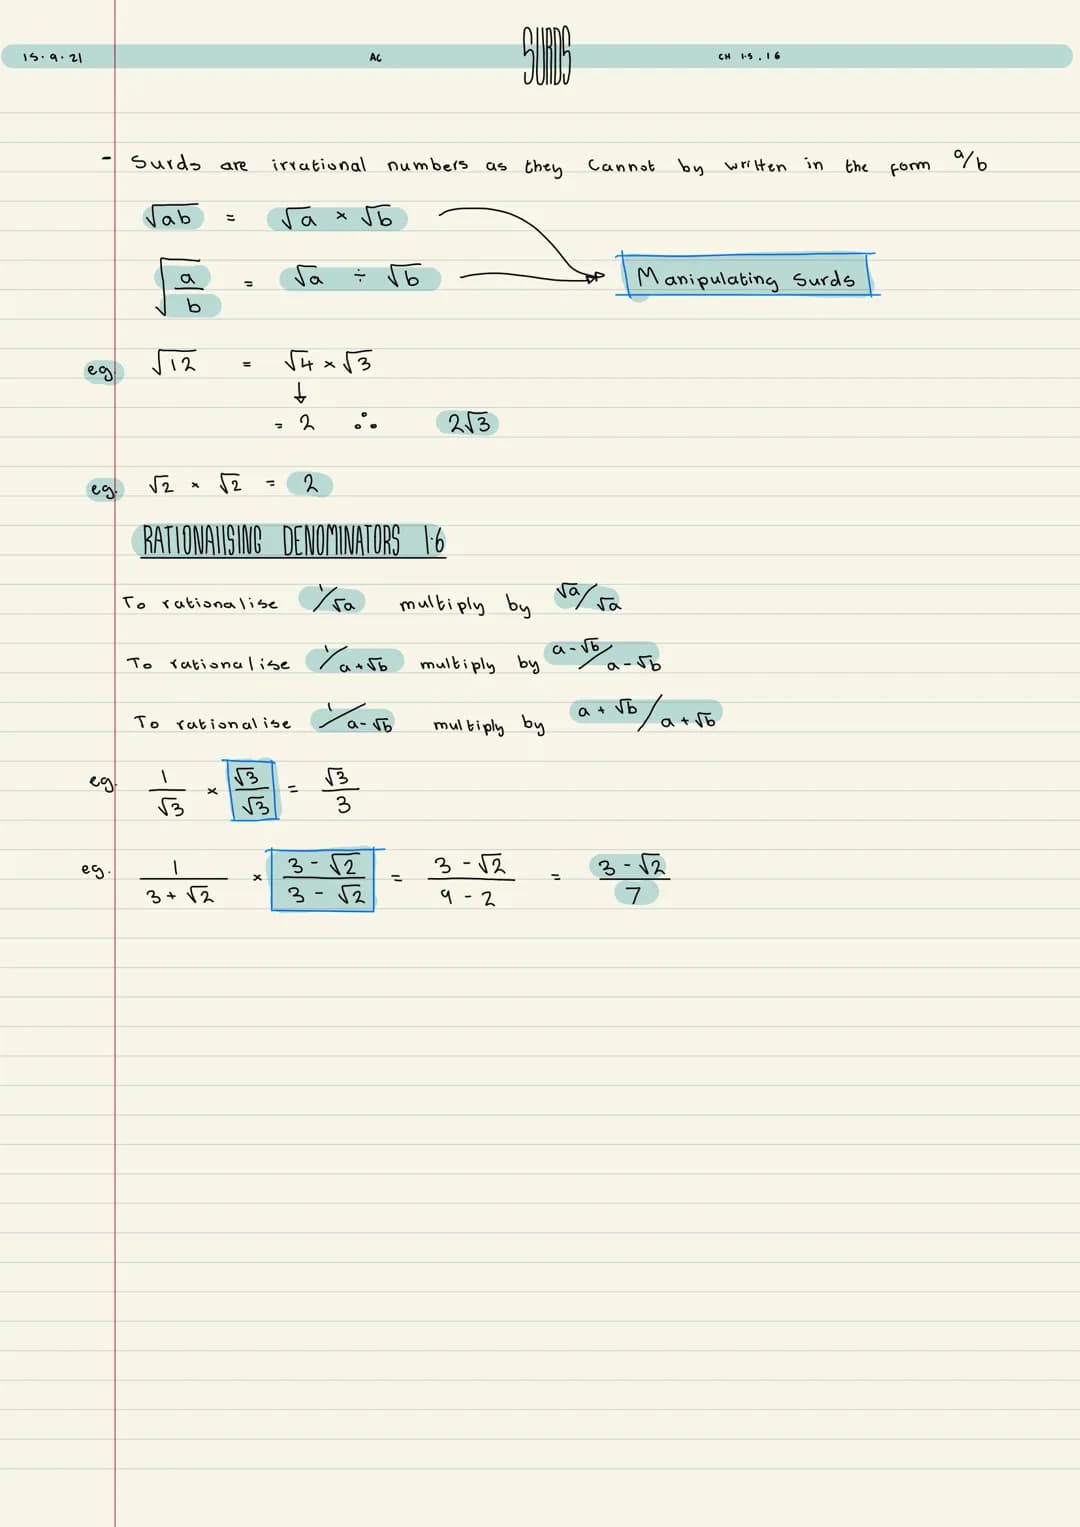 15.9.21 AC SURDS CH 1.5, 1.6
- Surds are irrational numbers as they cannot by written in the form a/b
√ab = √a × √b
√(a/b) = √a ÷ √b Manipulating Surds
eg. √12 = √4 × √3
↓
= 2 ∴ 2√3
eg. √2 × √2 = 2
RATIONALISING DENOMINATORS 1.6
To rationalise 1/√a multiply by √a/√a
To rationalise 1/a+√b multiply by a-√b/a-√b
To rationalise 1/a-√b multiply by a+√b/a+√b
eg. 1/√3 × √3/√3 = √3/3
eg. 1/3+√2 × 3-√2/3-√2 = 3-√2/9-2 = 3-√2/7